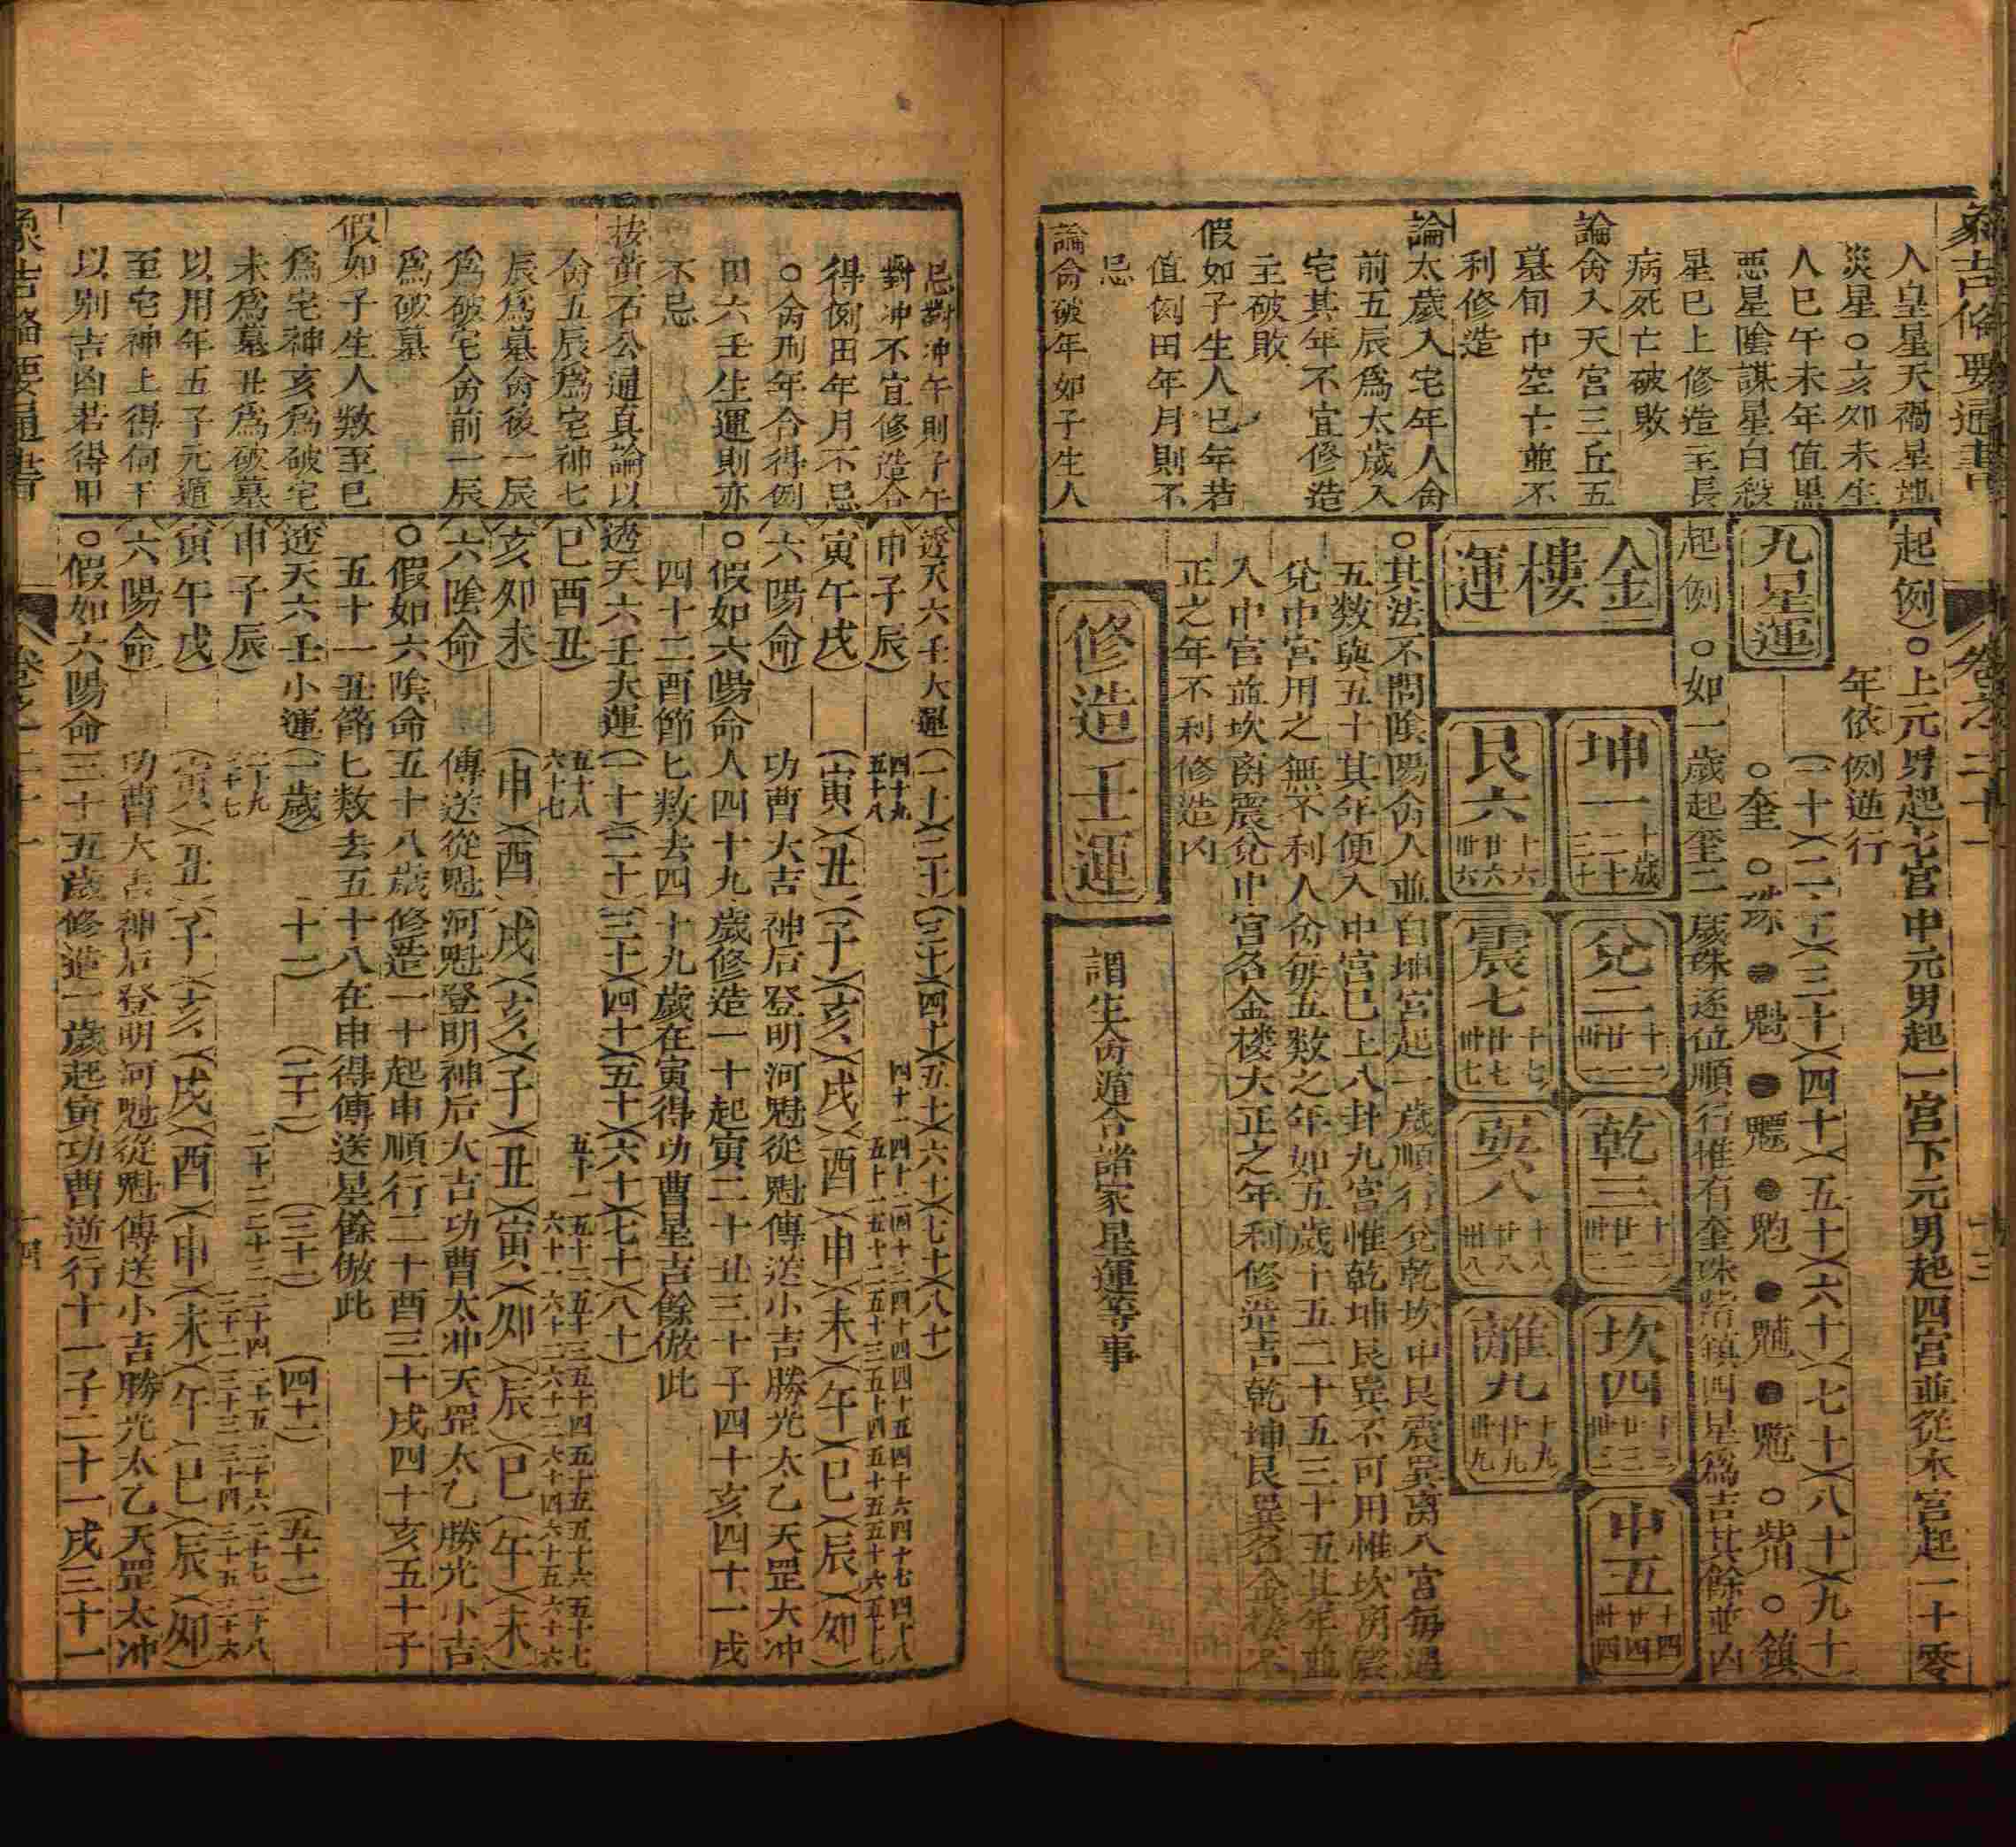 象吉備要通書
卷之二十一
十三
人皇星天禍星地
災星○亥卯未生
人巳午未年值黑
惡星陰謀星白殺
星巳上修造主長
病死亡破敗
論命入天宮三丘五
墓旬中空亡並不
利修造
論太歲入宅年人命
前五辰爲太歲入
宅其年不宜修造
主破敗
假如子生人巳年若
值例田年月則不
忌
論命破年如子生人
起例○上元男起七宮中元男起一宮下元男起四宮並從本宮起一十零
年依例逆行
(一十)(二十)(三十)(四十)(五十)(六十)(七十)(八十)(九十)
九星運
○奎
●魁
○鎮
起例○如一歲起奎二歲珠逐位順行惟有奎珠 鎮四星爲吉其餘並凶
金樓運
坤一
十歲
二十
三十
兌二
十一
廿一
卅一
乾三
十二
廿二
卅二
坎四
十三
廿三
卅三
中五
十四
廿四
卅四
艮六
十六
廿六
卅六
震七
十七
廿七
卅七
巽八
十八
廿八
卅八
離九
十九
廿九
卅九
○其法不問陰陽命人並自坤宮起一歲順行兌乾坎中艮震巽离八宮每遇
五數與五十其年便入中宮巳上八卦九宮惟乾坤艮巽不可用惟坎离震
兌中宮用之無不利人命每五數之年如五歲十五二十五三十五其年並
入中宮並坎离震兌中宮名金楼大正之年利修造吉乾坤艮巽名金楼不
正之年不利修造凶
修造壬運
謂生命遁合諸家星運等事
忌對冲午則子午
對冲不宜修造合
得例田年月不忌
○命刑年合得例
田六壬生運則亦
不忌
按黃石公通真論以
命五辰爲宅神七
辰爲墓命後一辰
爲破宅命前一辰
爲破墓
假如子生人數至巳
爲宅神亥爲破宅
未爲墓丑爲破墓
以用年五子元遁
至宅神上得何干
以別吉凶若得甲
透天六壬大運(一十)(二十)(三十)(四十)(五十)(六十)(七十)(八十)
申子辰)
四十九
五十八
四十一四十二四十三四十四四十五四十六四十七四十八
五十一五十二五十三五十四五十五五十六五十七
(寅午戌)(寅)(丑)(子)(亥)(戌)(酉)(申)(未)(午)(巳)(辰)(卯)
(六陽命)功曹大吉神后登明河魁從魁傳送小吉勝光太乙天罡太冲
○假如六陽命人四十九歲修造一十起寅二十丑三十子四十亥四十一戌
四十二酉節匕數去四十九歲在寅得功曹星吉餘倣此
透天六壬大運(一十)(二十)(三十)(四十)(五十)(六十)(七十)(八十)
(巳酉丑)
五十八
六十七
五十一五十二五十三五十四五十五五十六五十七
六十一六十二六十三六十四六十五六十六
(亥卯未)(申)(酉)(戌)(亥)(子)(丑)(寅)(卯)(辰)(巳)(午)(未)
(六陰命)傳送從魁河魁登明神后大吉功曹太冲天罡太乙勝光小吉
○假如六陰命五十八歲修造一十起申順行二十酉三十戌四十亥五十子
五十一丑節匕數去五十八在申得傳送星餘倣此
透天六壬小運(一歲)(十一)(二十一)(三十一)(四十一)(五十一)
申子辰)
二十九
三十七
二十二二十三二十四二十五二十六二十七二十八
三十二三十三三十四三十五三十六
(寅午戌)(寅)(丑)(子)(亥)(戌)(酉)(申)(未)(午)(巳)(辰)(卯)
(六陽命)功曹大吉神后登明河魁從魁傳送小吉勝光太乙天罡太冲
○假如六陽命三十五歲修造一歲起寅功曹逆行十一子二十一戌三十一
象吉備要通書
卷之二十一
十四